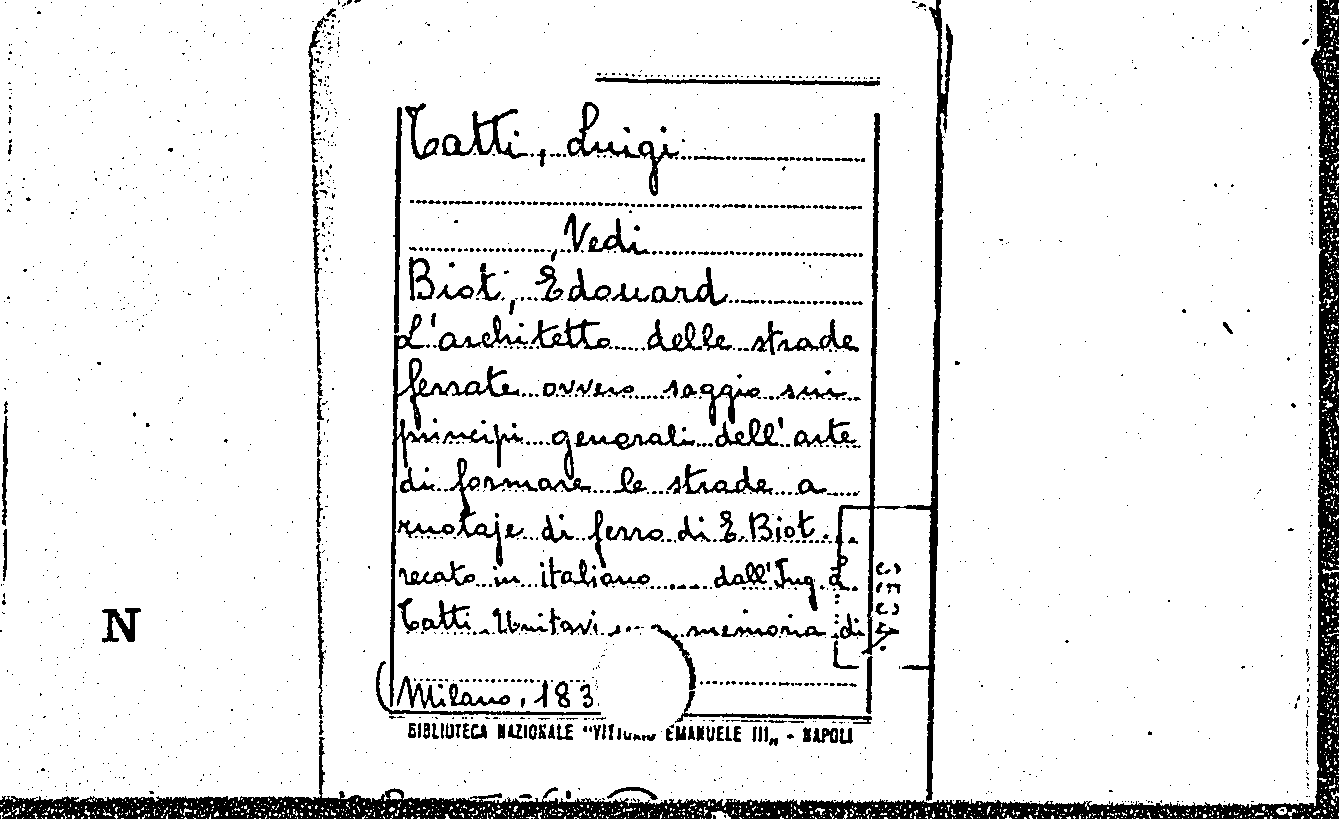 Tatti, Luigi
Vedi
Biot, Édouard
L'architetto delle strade
ferrate ovvero saggio sui
principi generali dell'arte
di formare le strade a
ruotaje di ferro di E. Biot...
recato in italiano ... dall'Ing. L.
Tatti. Unitavi ... memoria di
N
(Milano, 183
BIBLIOTECA NAZIONALE "VITTORIO EMANUELE III" - NAPOLI